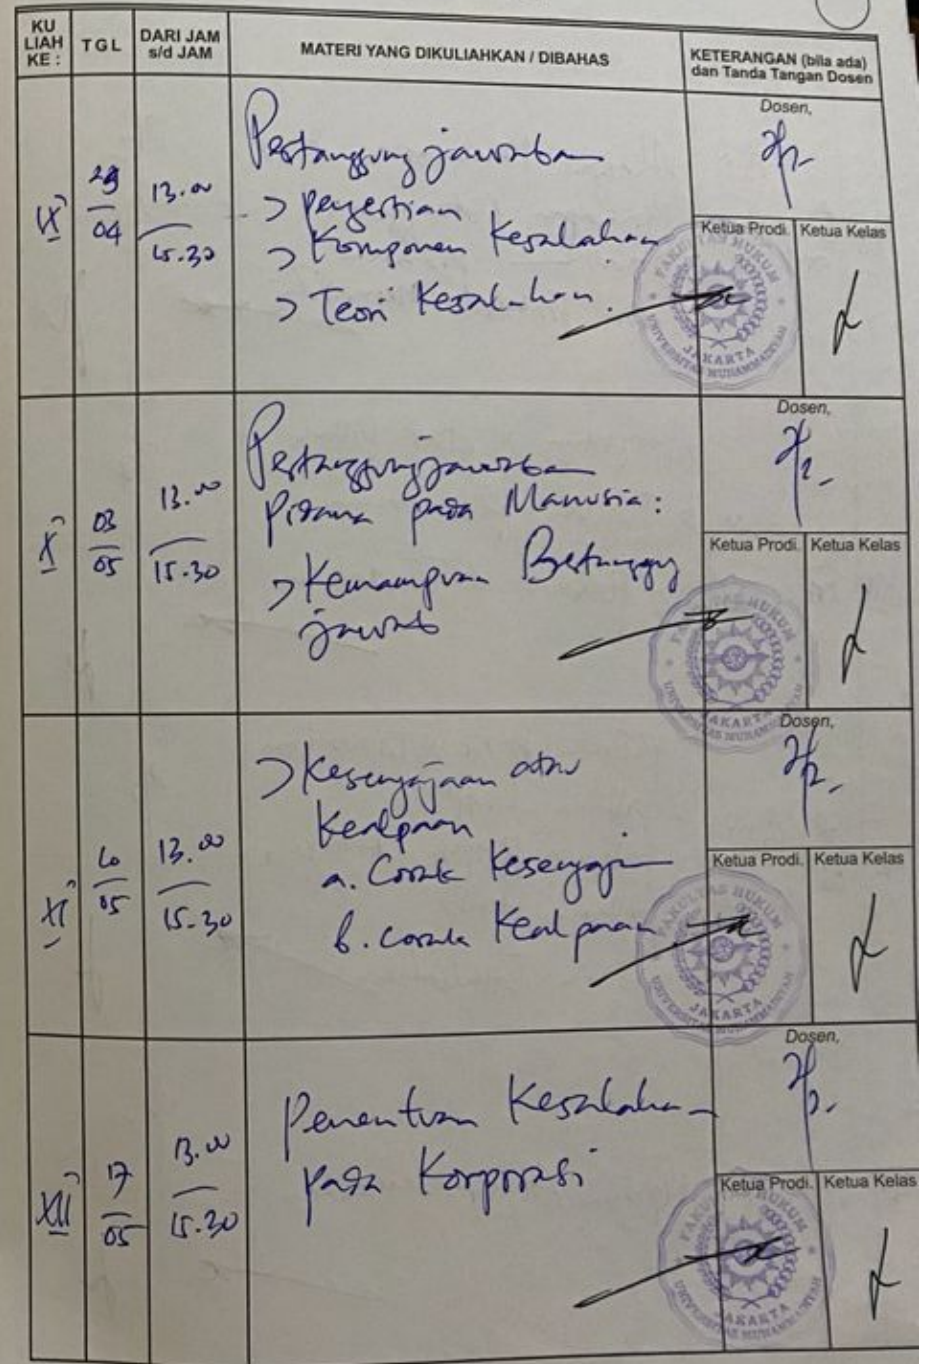 KU LIAH KE :
TGL
DARI JAM s/d JAM
MATERI YANG DIKULIAHKAN / DIBAHAS
KETERANGAN (bila ada) dan Tanda Tangan Dosen
IX
29/04
13.00
15.30
Pertanggungjawaban
> pengertian
> Komponen Kesalahan
> Teori Kesalahan.
Dosen,
Ketua Prodi.
Ketua Kelas
FAKULTAS HUKUM
UNIVERSITAS MUHAMMADIYAH
JAKARTA
X
03/05
13.00
15.30
Pertanggungjawaban
Pidana pada Manusia :
> Kemampuan Bertanggung
jawab
Dosen,
Ketua Prodi.
Ketua Kelas
FAKULTAS HUKUM
UNIVERSITAS MUHAMMADIYAH
JAKARTA
XI
/05
13.00
15.30
> Kesengajaan atau
Kealpaan
a. Corak Kesengajaan
b. Corak Kealpaan
Dosen,
Ketua Prodi.
Ketua Kelas
FAKULTAS HUKUM
UNIVERSITAS MUHAMMADIYAH
JAKARTA
XII
17/05
13.00
15.30
Penentuan Kesalahan
pada Korporasi
Dosen,
Ketua Prodi.
Ketua Kelas
FAKULTAS HUKUM
UNIVERSITAS MUHAMMADIYAH
JAKARTA